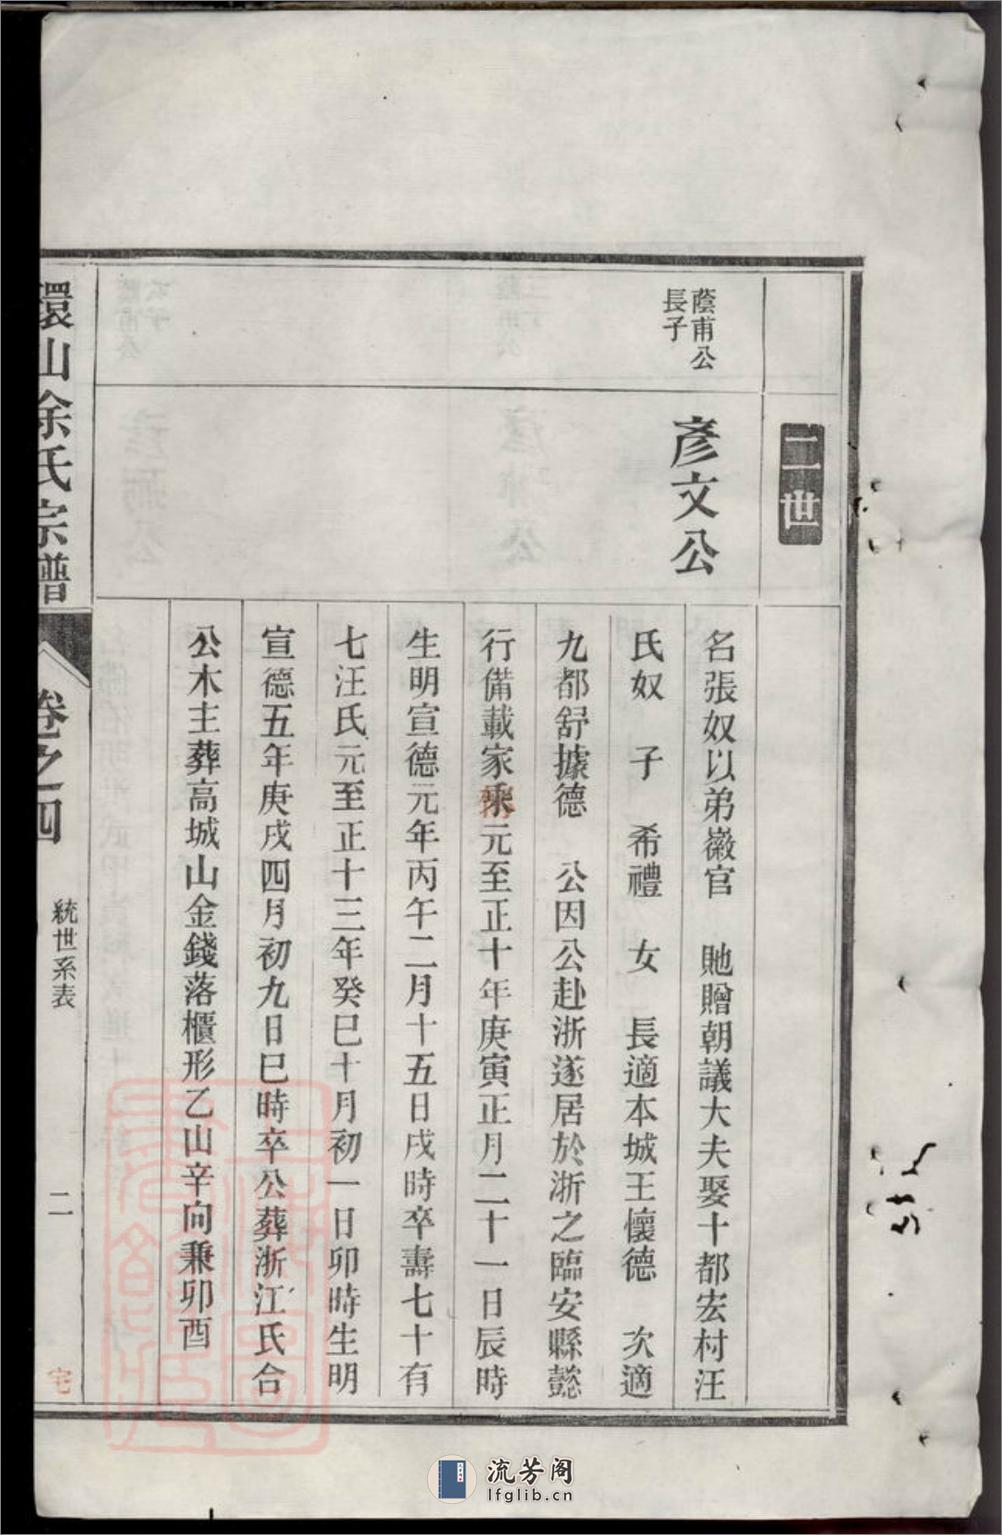 二世
蔭甫公
長子
彥文公
名張奴以弟徽官 貤贈朝議大夫娶十都宏村汪
氏奴 子 希禮 女 長適本城王懷德 次適
九都舒據德 公因公赴浙遂居於浙之臨安縣懿
行備載家乘元至正十年庚寅正月二十一日辰時
生明宣德元年丙午二月十五日戌時卒壽七十有
七汪氏元至正十三年癸巳十月初一日卯時生明
宣德五年庚戌四月初九日巳時卒公葬浙江氏合
公木主葬高城山金錢落櫃形乙山辛向兼卯酉
環山余氏宗譜
卷之四
統世系表
二
宅
流芳阁
lfglib.cn